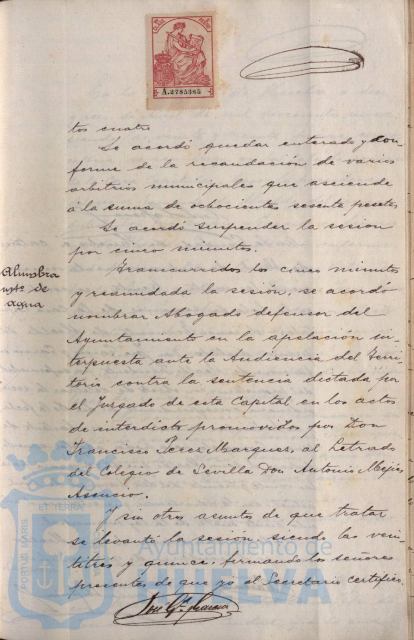 A.2785365
tos cuatro
Se acordó quedar enterado y con-
forme de la recaudación de varios
arbitrios municipales que asciende
á la suma de ochocientas sesenta pesetas
Se acordó suspender la sesion
por cinco minutos.
Alumbra
mto. de
agua
Transcurridos los cinco minutos
y reanudada la sesión, se acordó
nombrar Abogado defensor del
Ayuntamiento en la apelación in-
terpuesta ante la Audiencia del Terri-
torio contra la sentencia dictada por
el Juzgado de esta Capital en los autos
de interdicto promovidos por Don
Francisco Perez Marquez, al Letrado
del Colegio de Sevilla Don Antonio Mejias
Asencio.
Y sin otros asuntos de que tratar
se levantó la sesión, siendo las vein-
titrés y quince, firmando los señores
presentes de que yo el Secretario certifico.
PORTUS MARIS ET TERRÆ
Ayuntamiento de
HUELVA